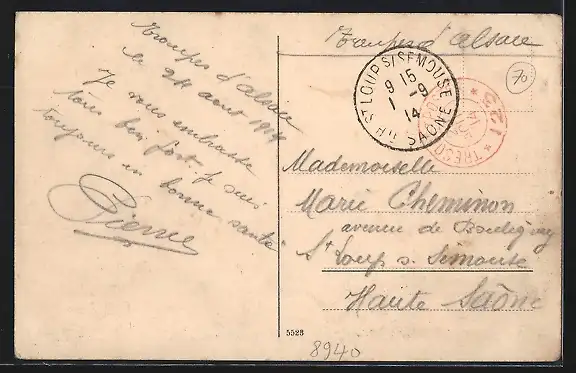 Troupes d'Alsace
le 24 aout 1914
Je vous embrasse
tous bien fort. Je suis
toujours en bonne santé
Pierre
Troupes d'alsace
ST LOUP S/SEMOUSE
9 15
1 -9
14
Hte SAONE
TRESOR
* 122 *
70
Mademoiselle
Marie Cheminon
avenue de
St Loup s. Semouse
Haute Saône
5523
8940